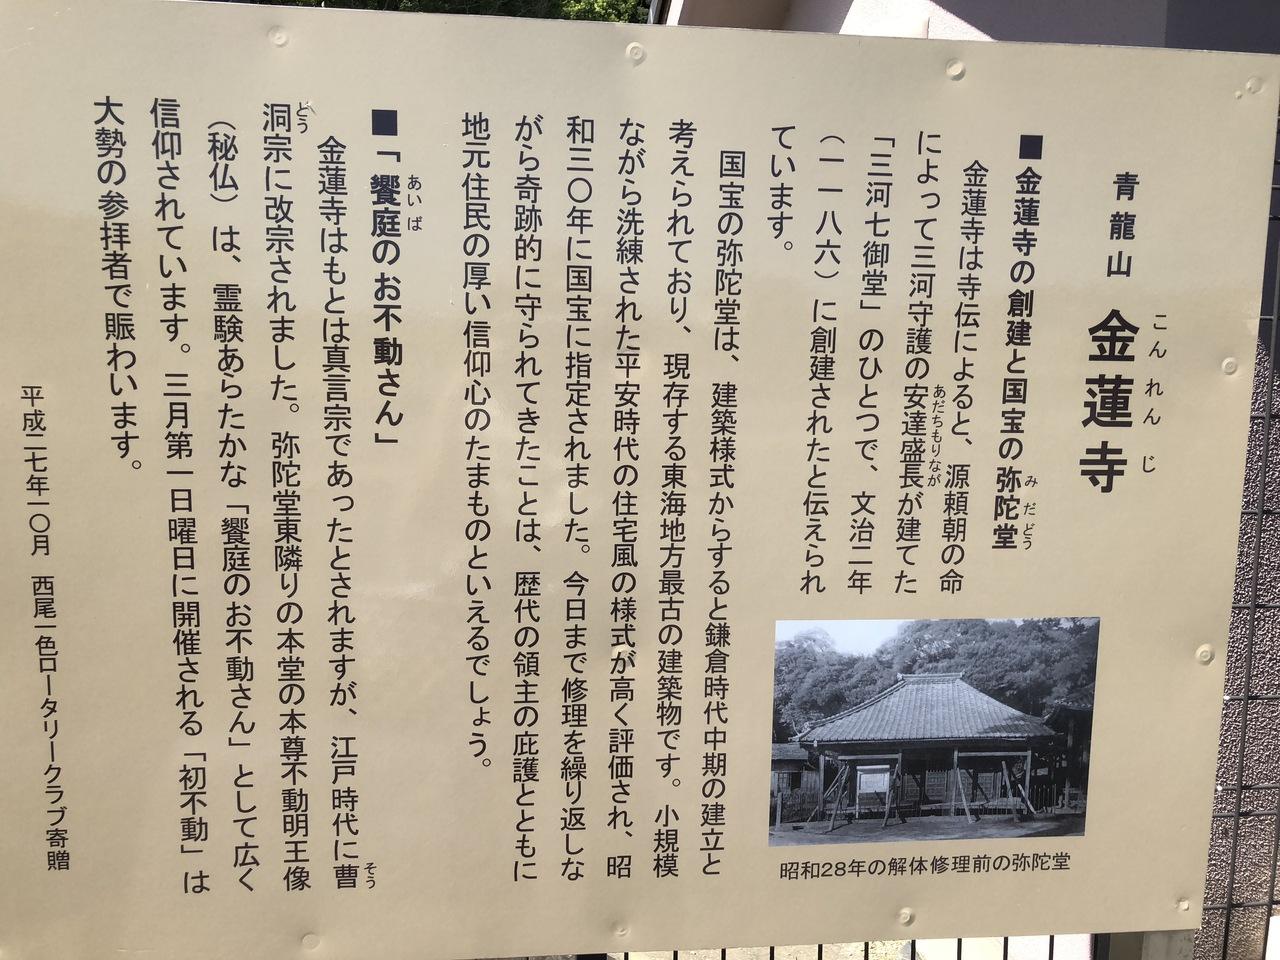 青龍山　金蓮寺
こんれんじ
■金蓮寺の創建と国宝の弥陀堂
みだどう
　金蓮寺は寺伝によると、源頼朝の命
によって三河守護の安達盛長が建てた
あだちもりなが
「三河七御堂」のひとつで、文治二年
（一一八六）に創建されたと伝えられ
ています。
　国宝の弥陀堂は、建築様式からすると鎌倉時代中期の建立と
考えられており、現存する東海地方最古の建築物です。小規模
ながら洗練された平安時代の住宅風の様式が高く評価され、昭
和三〇年に国宝に指定されました。今日まで修理を繰り返しな
がら奇跡的に守られてきたことは、歴代の領主の庇護とともに
地元住民の厚い信仰心のたまものといえるでしょう。
昭和28年の解体修理前の弥陀堂
■「饗庭のお不動さん」
あいば
　金蓮寺はもとは真言宗であったとされますが、江戸時代に曹
そう
洞宗に改宗されました。弥陀堂東隣りの本堂の本尊不動明王像
どう
（秘仏）は、霊験あらたかな「饗庭のお不動さん」として広く
信仰されています。三月第一日曜日に開催される「初不動」は
大勢の参拝者で賑わいます。
平成二七年一〇月　西尾一色ロータリークラブ寄贈